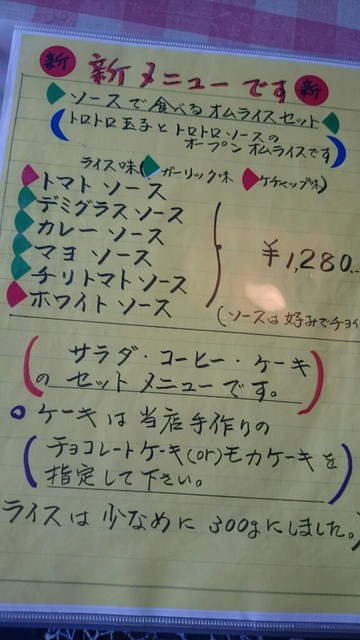 新 新メニューです 新
ソースで食べるオムライスセット
(トロトロ玉子とトロトロソースの
オープンオムライスです)
ライス味(ガーリック味 ケチャップ味)
トマトソース
デミグラスソース
カレーソース
マヨソース
チリトマトソース
ホワイトソース
¥1,280
(ソースは好みでチョイ
(サラダ・コーヒー・ケーキ
のセットメニューです。)
ケーキは当店手作りの
(チョコレートケーキ(or)モカケーキを
指定して下さい。)
ライスは少なめに300gにしました。)